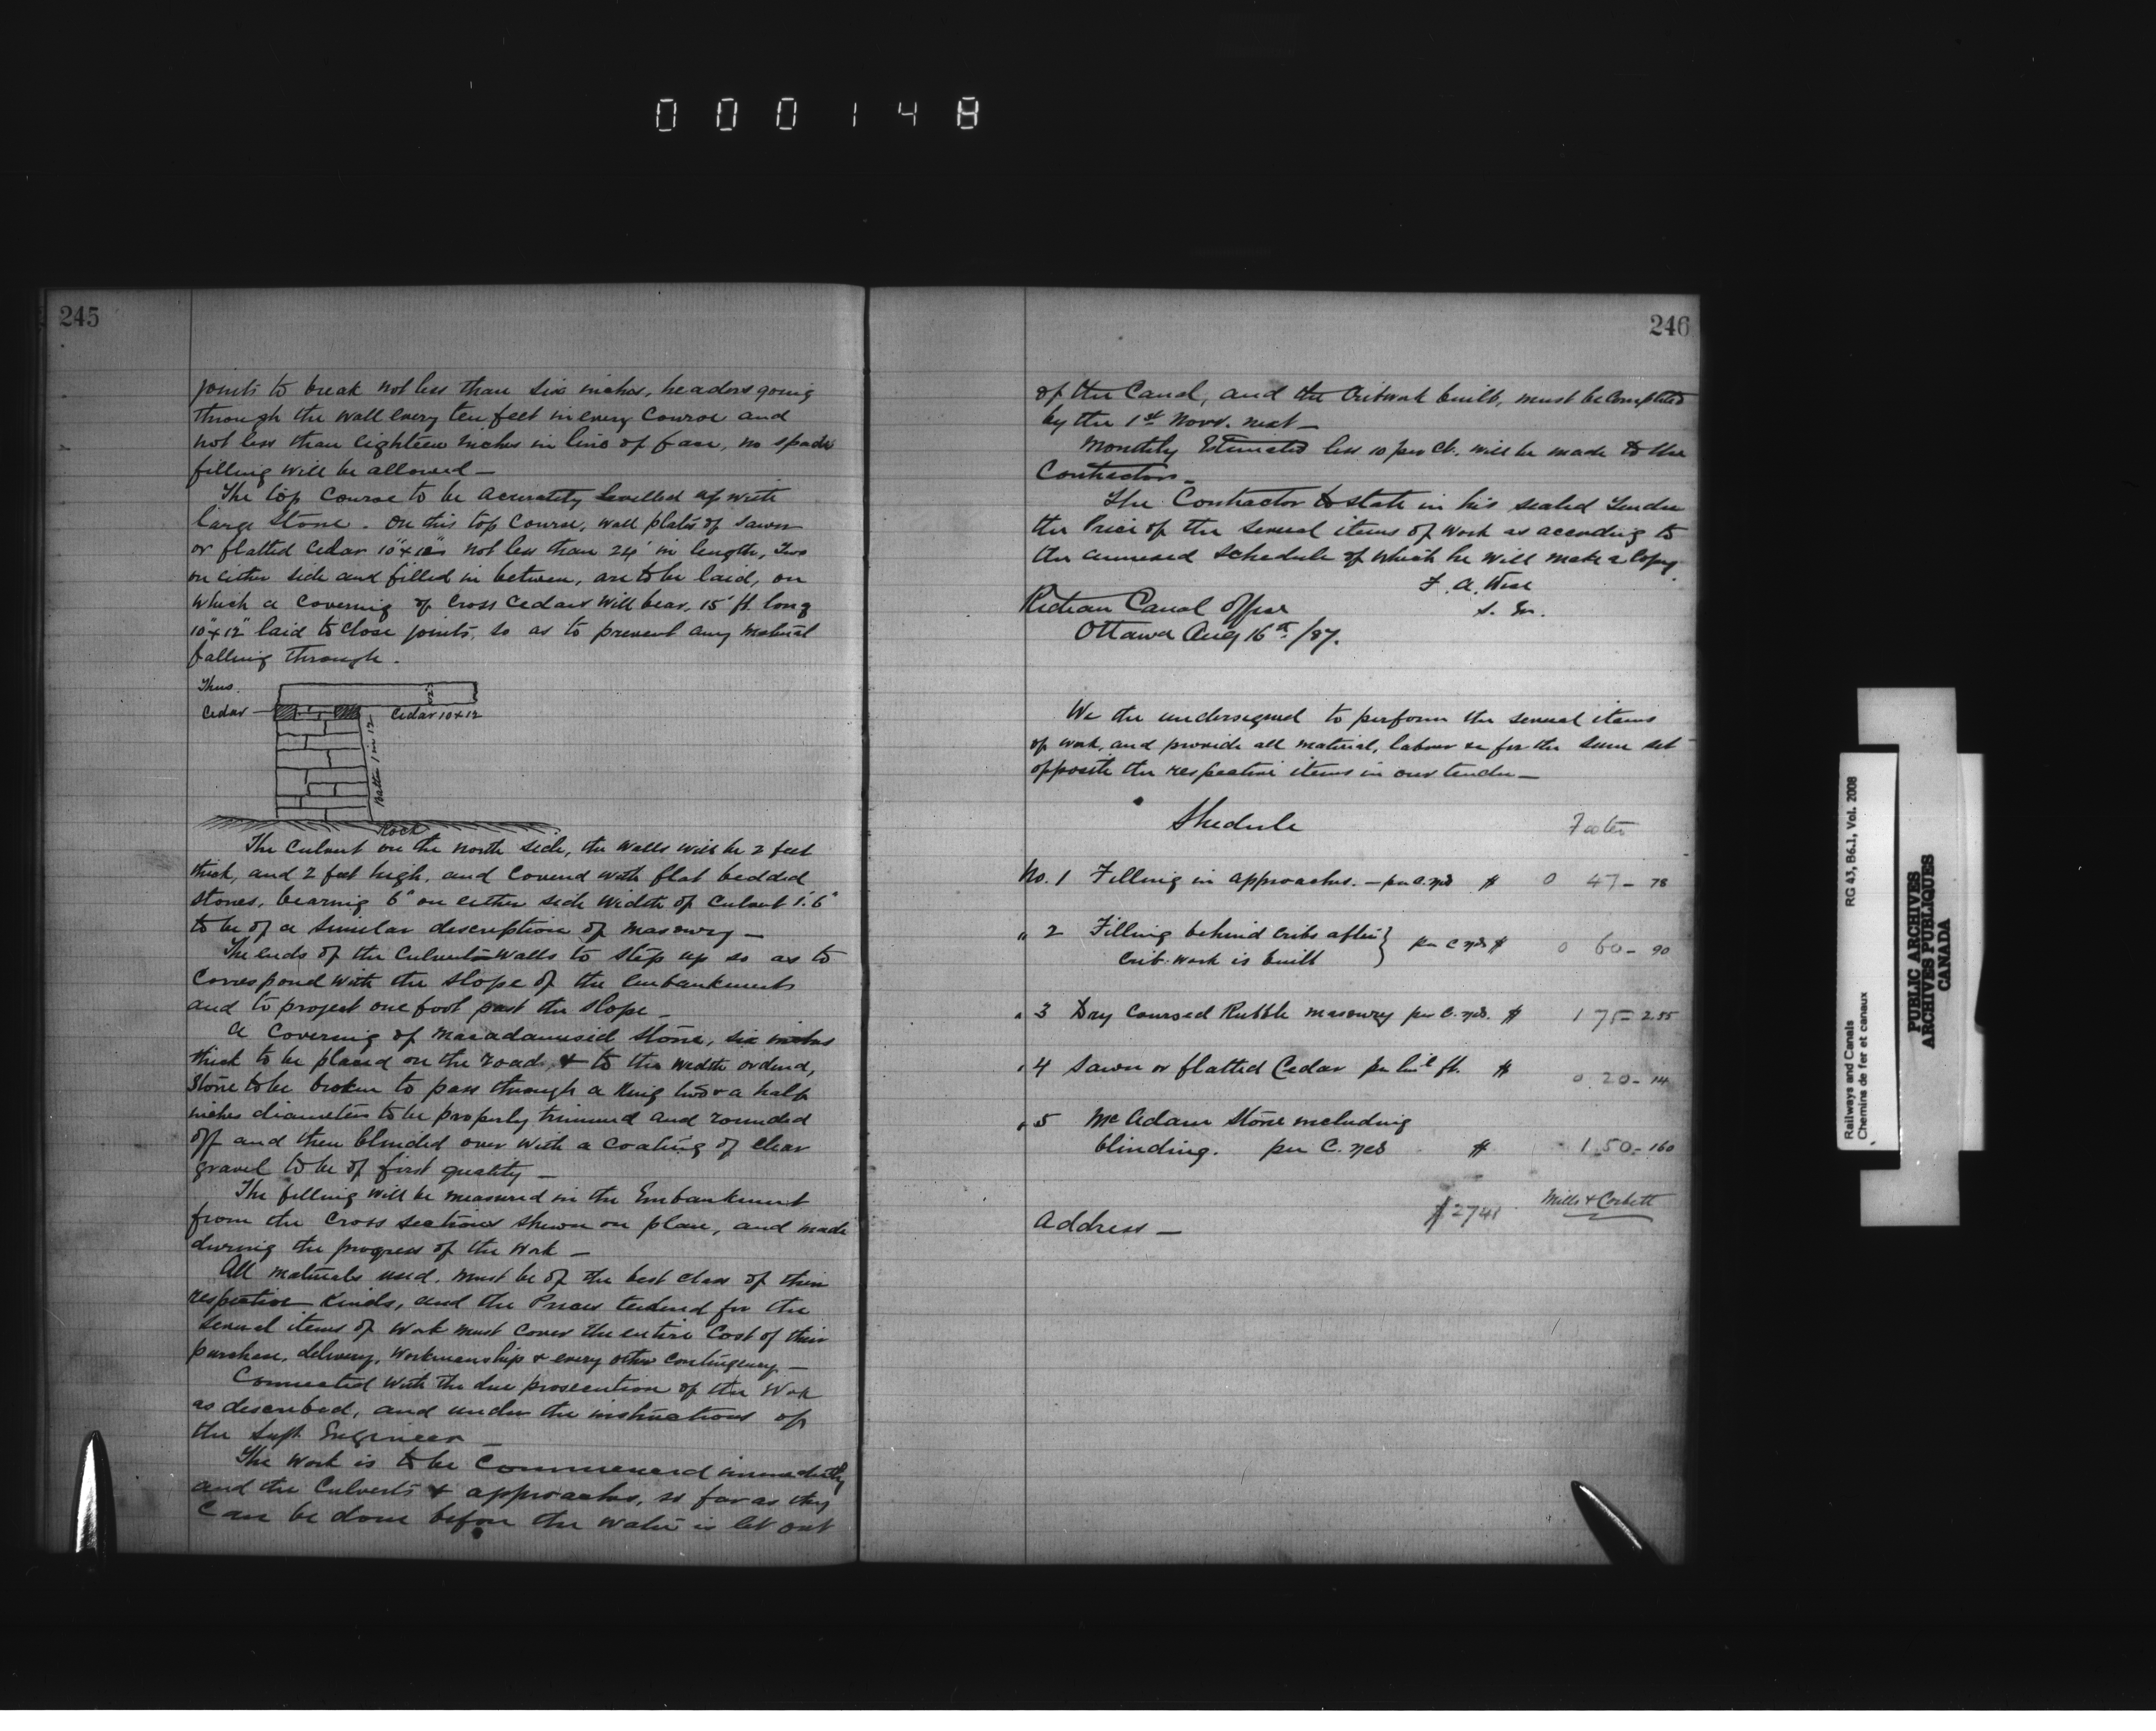 000148
245
joints to break not less than six inches, headers going
through the wall every ten feet in every course and
not less than eighteen inches in line of face, no spade
filling will be allowed —
The top course to be accurately levelled up with
large stone. On this top course, wall plates of sawn
or flatted cedar 10"x12" not less than 24' in length, two
on either side and filled in between, are to be laid, on
which a covering of cross cedars will bear, 15' ft. long
10"x12" laid to close joints, so as to prevent any material
falling through.
Thus.
Cedar —
12"
Cedar 10x12
Batter 1 in 12
Rock
The culvert on the north side, the walls will be 2 feet
thick, and 2 feet high, and covered with flat bedded
stones, bearing 6" on either side width of culvert 1'.6"
to be of a similar description of masonry —
The ends of the culverts walls to step up so as to
correspond with the slope of the embankments
and to project one foot past the slope —
A covering of macadamised stone, six inches
thick to be placed on the road, & to the width ordered,
stone to be broken to pass through a ring two & a half
inches diameter to be properly trimmed and rounded
off and then blinded over with a coating of clear
gravel to be of first quality —
The filling will be measured in the Embankment
from the cross sections shewn on plan, and made
during the progress of the work —
All materials used, must be of the best class of their
respective kinds, and the Prices tendered for the
several items of work must cover the entire cost of their
purchase, delivery, workmanship & every other contingency —
Connected with the due prosecution of the work
as described, and under the instructions of
the Supt. Engineer —
The work is to be commenced immediately
and the culverts & approaches, so far as they
can be done before the water is let out
246
of the Canal, and the cribwork built, must be completed
by the 1st Novr. next —
Monthly Estimates less 10 per ct. will be made to the
Contractors —
The Contractor to state in his sealed Tender
the Price of the several items of work as according to
the annexed schedule of which he will make a copy.
F. A. Wise
S. En.
Rideau Canal Office
Ottawa Aug 16th /87.
We the undersigned to perform the several items
of work, and provide all material, labour &c for the sum set
opposite the respective items in our tender —
Shedule
Foster
No. 1 Filling in approaches. — per C. yds $ 0 47 - 78
" 2 Filling behind cribs after } per C yds $ 0 60 - 90
crib-work is built
" 3 Dry coursed Rubble masonry per C. yds. $ 1 75 - 2.55
" 4 Sawn or flatted Cedar per linl ft. $ 0 20 - 14
" 5 McAdam Stone including
blinding. per C. yds $ 1.50 - 160
Mills & Corbett
$2741
Address —
Railways and Canals
Chemins de fer et canaux
RG 43, B6.1, Vol. 2008
PUBLIC ARCHIVES
ARCHIVES PUBLIQUES
CANADA